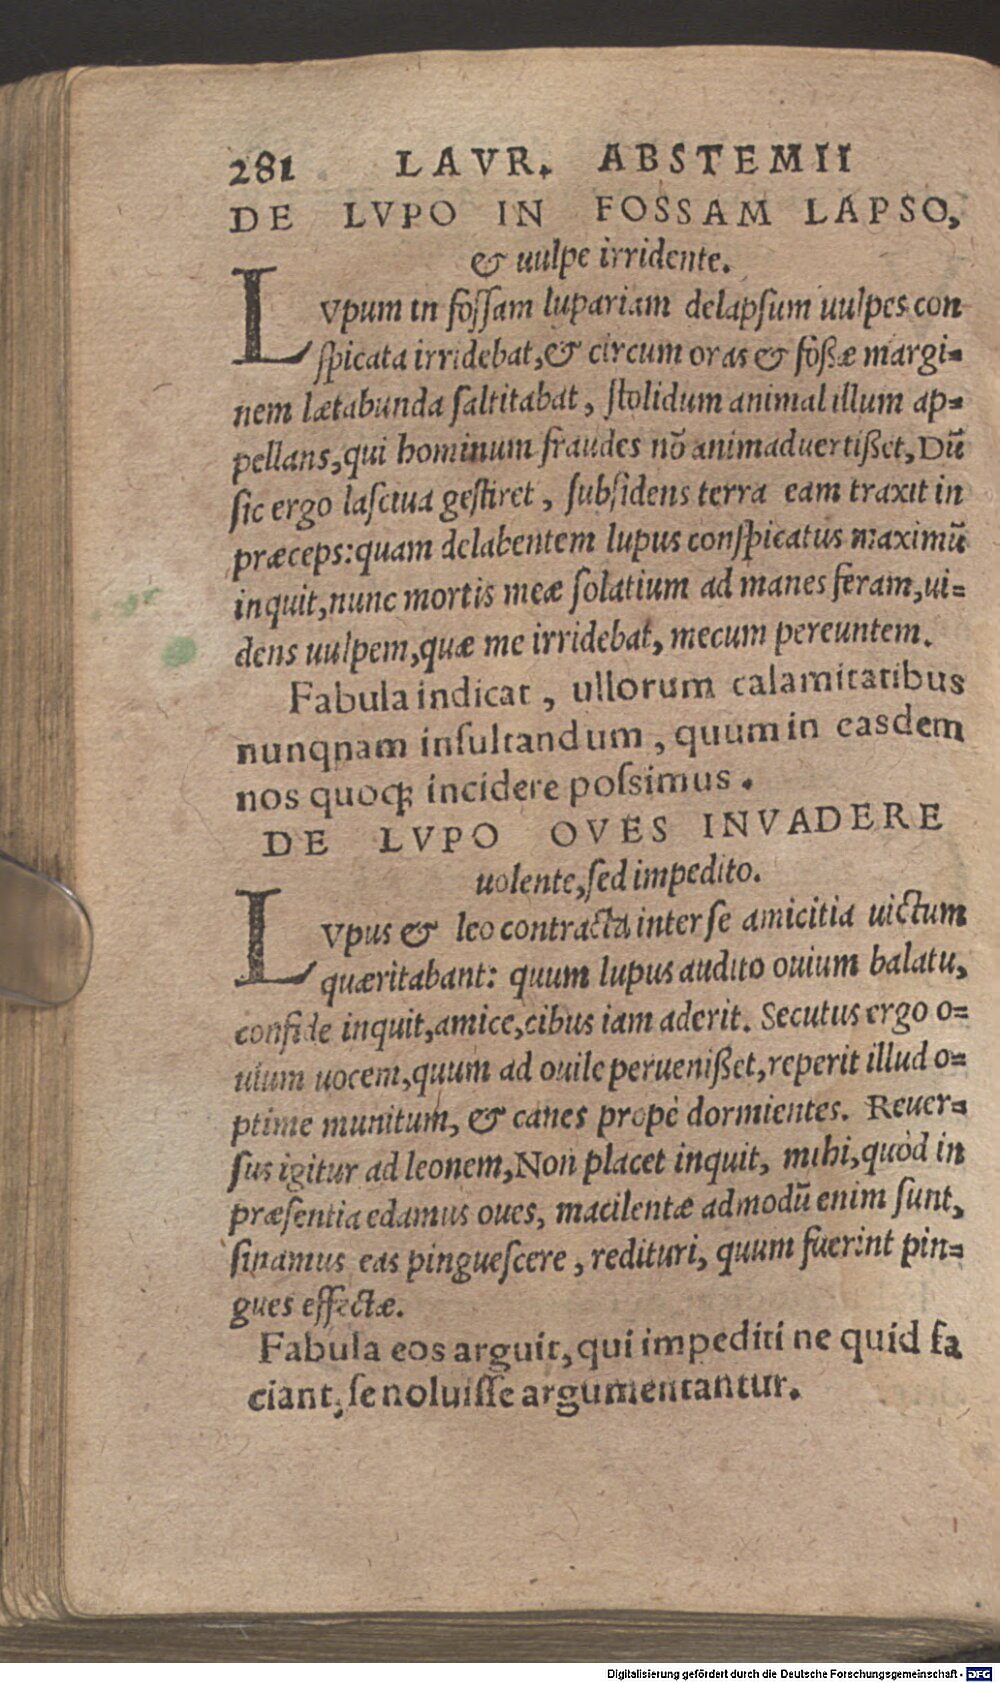 281 LAVR. ABSTEMII
DE LVPO IN FOSSAM LAPSO,
& uulpe irridente.
LVpum in foſſam lupariam delapſum uulpes con
ſpicata irridebat,& circum oras & foßæ margi=
nem lætabunda ſaltitabat, ſtolidum animal illum ap=
pellans,qui hominum fraudes nō animaduertißet,Dū
ſic ergo laſciua geſtiret, ſubſidens terra eam traxit in
præceps:quam delabentem lupus conſpicatus maximū
inquit,nunc mortis meæ ſolatium ad manes feram,ui=
dens uulpem,quæ me irridebat, mecum pereuntem.
Fabula indicat, ullorum calamitatibus
nunqnam inſultandum, quum in easdem
nos quoqꝫ incidere poſsimus.
DE LVPO OVES INVADERE
uolente,ſed impedito.
LVpus & leo contracta inter ſe amicitia uictum
quæritabant: quum lupus audito ouium balatu,
confide inquit,amice,cibus iam aderit. Secutus ergo o=
uium uocem,quum ad ouile peruenißet,reperit illud o=
ptime munitum, & canes propè dormientes. Reuer=
ſus igitur ad leonem,Non placet inquit, mihi,quòd in
præſentia edamus oues, macilentæ admodū enim ſunt,
ſinamus eas pingueſcere, redituri, quum fuerint pin=
gues effectæ.
Fabula eos arguit,qui impediti ne quid fa
ciant,ſe noluiſſe argumentantur.
Digitalisierung gefördert durch die Deutsche Forschungsgemeinschaft - DFG